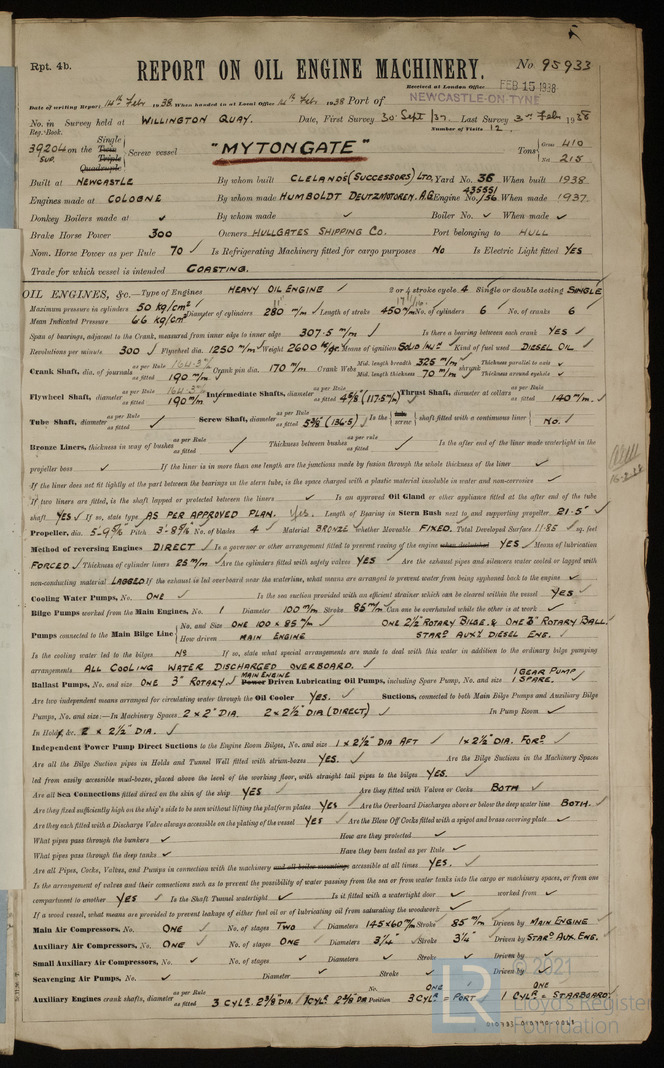 Rpt. 4b.
REPORT ON OIL ENGINE MACHINERY.
No. 95933
Received at London Office FEB 15 1938
Date of writing Report 14th Feb 1938 When handed in at Local Office 14th Feb 1938 Port of NEWCASTLE-ON-TYNE
No. in Survey held at WILLINGTON QUAY. Date, First Survey 30 Sept /37. Last Survey 3rd Feb 1938
Reg. Book. Number of Visits 12.
39204 SUP. on the Single Twin Triple Quadruple Screw vessel "MYTONGATE" Tons Gross 410 Net 215
Built at NEWCASTLE By whom built CLELANDS (SUCCESSORS) LTD. Yard No. 36 When built 1938
Engines made at COLOGNE By whom made HUMBOLDT DEUTZMOTOREN. A.G. Engine No. 435551/56 When made 1937.
Donkey Boilers made at ✓ By whom made ✓ Boiler No. ✓ When made ✓
Brake Horse Power 300 Owners HULLGATES SHIPPING CO. Port belonging to HULL
Nom. Horse Power as per Rule 70 ✓ Is Refrigerating Machinery fitted for cargo purposes NO Is Electric Light fitted YES
Trade for which vessel is intended COASTING.
OIL ENGINES, &c.—Type of Engines HEAVY OIL ENGINE ✓ 2 or 4 stroke cycle 4 Single or double acting SINGLE
Maximum pressure in cylinders 50 kg/cm² Diameter of cylinders 11" 280 m/m Length of stroke 17 11/16" 450 m/m No. of cylinders 6 No. of cranks 6
Mean Indicated Pressure 6.6 kg/cm²
Span of bearings, adjacent to the Crank, measured from inner edge to inner edge 307.5 m/m Is there a bearing between each crank YES ✓
Revolutions per minute 300 Flywheel dia. 1250 m/m Weight 2600 kgr. Means of ignition SOLID INJ. Kind of fuel used DIESEL OIL
Crank Shaft, dia. of journals as per Rule 164.3 m/m as fitted 190 m/m Crank pin dia. 170 m/m Crank Webs Mid. length breadth 325 m/m Mid. length thickness 70 m/m shrunk Thickness parallel to axis ✓ Thickness around eyehole ✓
Flywheel Shaft, diameter as per Rule 164.3 m/m as fitted 190 m/m Intermediate Shafts, diameter as per Rule as fitted 4 5/8" (117.5 m/m) Thrust Shaft, diameter at collars as per Rule as fitted 140 m/m ✓
Tube Shaft, diameter as per Rule as fitted ✓ Screw Shaft, diameter as per Rule as fitted 5 3/8" (136.5) Is the tube screw shaft fitted with a continuous liner NO.
Bronze Liners, thickness in way of bushes as per Rule as fitted ✓ Thickness between bushes as per rule as fitted ✓ Is the after end of the liner made watertight in the
propeller boss ✓ If the liner is in more than one length are the junctions made by fusion through the whole thickness of the liner ✓
If the liner does not fit tightly at the part between the bearings in the stern tube, is the space charged with a plastic material insoluble in water and non-corrosive ✓
If two liners are fitted, is the shaft lapped or protected between the liners ✓ Is an approved Oil Gland or other appliance fitted at the after end of the tube
shaft YES ✓ If so, state type AS PER APPROVED PLAN. Yes. Length of Bearing in Stern Bush next to and supporting propeller 21.5"
Propeller, dia. 5'-9 5/16" Pitch 3'-8 5/16" No. of blades 4 Material BRONZE whether Moveable FIXED. Total Developed Surface 11.85 sq. feet
Method of reversing Engines DIRECT Is a governor or other arrangement fitted to prevent racing of the engine when declutched YES ✓ Means of lubrication
FORCED ✓ Thickness of cylinder liners 25 m/m Are the cylinders fitted with safety valves YES Are the exhaust pipes and silencers water cooled or lagged with
non-conducting material LAGGED If the exhaust is led overboard near the waterline, what means are arranged to prevent water from being syphoned back to the engine ✓
Cooling Water Pumps, No. ONE ✓ Is the sea suction provided with an efficient strainer which can be cleared within the vessel YES ✓
Bilge Pumps worked from the Main Engines, No. 1 Diameter 100 m/m Stroke 85 m/m Can one be overhauled while the other is at work ✓
Pumps connected to the Main Bilge Line No. and Size ONE 100 x 85 m/m ✓ ONE 2 1/2" ROTARY BILGE. & ONE 3" ROTARY BALL.
How driven MAIN ENGINE STARD AUXY DIESEL ENG. ✓
Is the cooling water led to the bilges NO If so, state what special arrangements are made to deal with this water in addition to the ordinary bilge pumping
arrangements. ALL COOLING WATER DISCHARGED OVERBOARD. ✓
Ballast Pumps, No. and size ONE 3" ROTARY ✓ MAIN ENGINE Power Driven Lubricating Oil Pumps, including Spare Pump, No. and size 1 GEAR PUMP 1 SPARE. ✓
Are two independent means arranged for circulating water through the Oil Cooler YES. ✓ Suctions, connected to both Main Bilge Pumps and Auxiliary Bilge
Pumps, No. and size:—In Machinery Spaces 2 x 2" DIA. 2 x 2 1/2" DIA (DIRECT) In Pump Room ✓
In Holds, &c. 2 x 2 1/2" DIA. ✓
Independent Power Pump Direct Suctions to the Engine Room Bilges, No. and size 1 x 2 1/2" DIA AFT ✓ 1 x 2 1/2" DIA. FORD ✓
Are all the Bilge Suction pipes in Holds and Tunnel Well fitted with strum-boxes YES. ✓ Are the Bilge Suctions in the Machinery Spaces
led from easily accessible mud-boxes, placed above the level of the working floor, with straight tail pipes to the bilges YES. ✓
Are all Sea Connections fitted direct on the skin of the ship YES ✓ Are they fitted with Valves or Cocks BOTH ✓
Are they fixed sufficiently high on the ship's side to be seen without lifting the platform plates YES ✓ Are the Overboard Discharges above or below the deep water line BOTH. ✓
Are they each fitted with a Discharge Valve always accessible on the plating of the vessel YES ✓ Are the Blow Off Cocks fitted with a spigot and brass covering plate ✓
What pipes pass through the bunkers ✓ How are they protected ✓
What pipes pass through the deep tanks ✓ Have they been tested as per Rule ✓
Are all Pipes, Cocks, Valves, and Pumps in connection with the machinery and all boiler mountings accessible at all times YES. ✓
Is the arrangement of valves and their connections such as to prevent the possibility of water passing from the sea or from water tanks into the cargo or machinery spaces, or from one
compartment to another YES ✓ Is the Shaft Tunnel watertight ✓ Is it fitted with a watertight door ✓ worked from ✓
If a wood vessel, what means are provided to prevent leakage of either fuel oil or of lubricating oil from saturating the woodwork ✓
Main Air Compressors, No. ONE ✓ No. of stages TWO ✓ Diameters 145x60 m/m Stroke 85 m/m Driven by MAIN ENGINE ✓
Auxiliary Air Compressors, No. ONE ✓ No. of stages ONE ✓ Diameters 3 1/4" Stroke 3 1/4" Driven by STARD AUX. ENG. ✓
Small Auxiliary Air Compressors, No. ✓ No. of stages ✓ Diameters ✓ Stroke ✓ Driven by ✓
Scavenging Air Pumps, No. ✓ Diameter ✓ Stroke ✓ Driven by ✓
Auxiliary Engines crank shafts, diameter as per Rule as fitted 3 CYLR. 2 3/8" DIA. 1 CYLR. 2 3/8" DIA No. ONE ONE Position 3 CYLR = PORT 1 CYLR = STARBOARD.
16-2-38
© 2021
Lloyd's Register
Foundation
LR